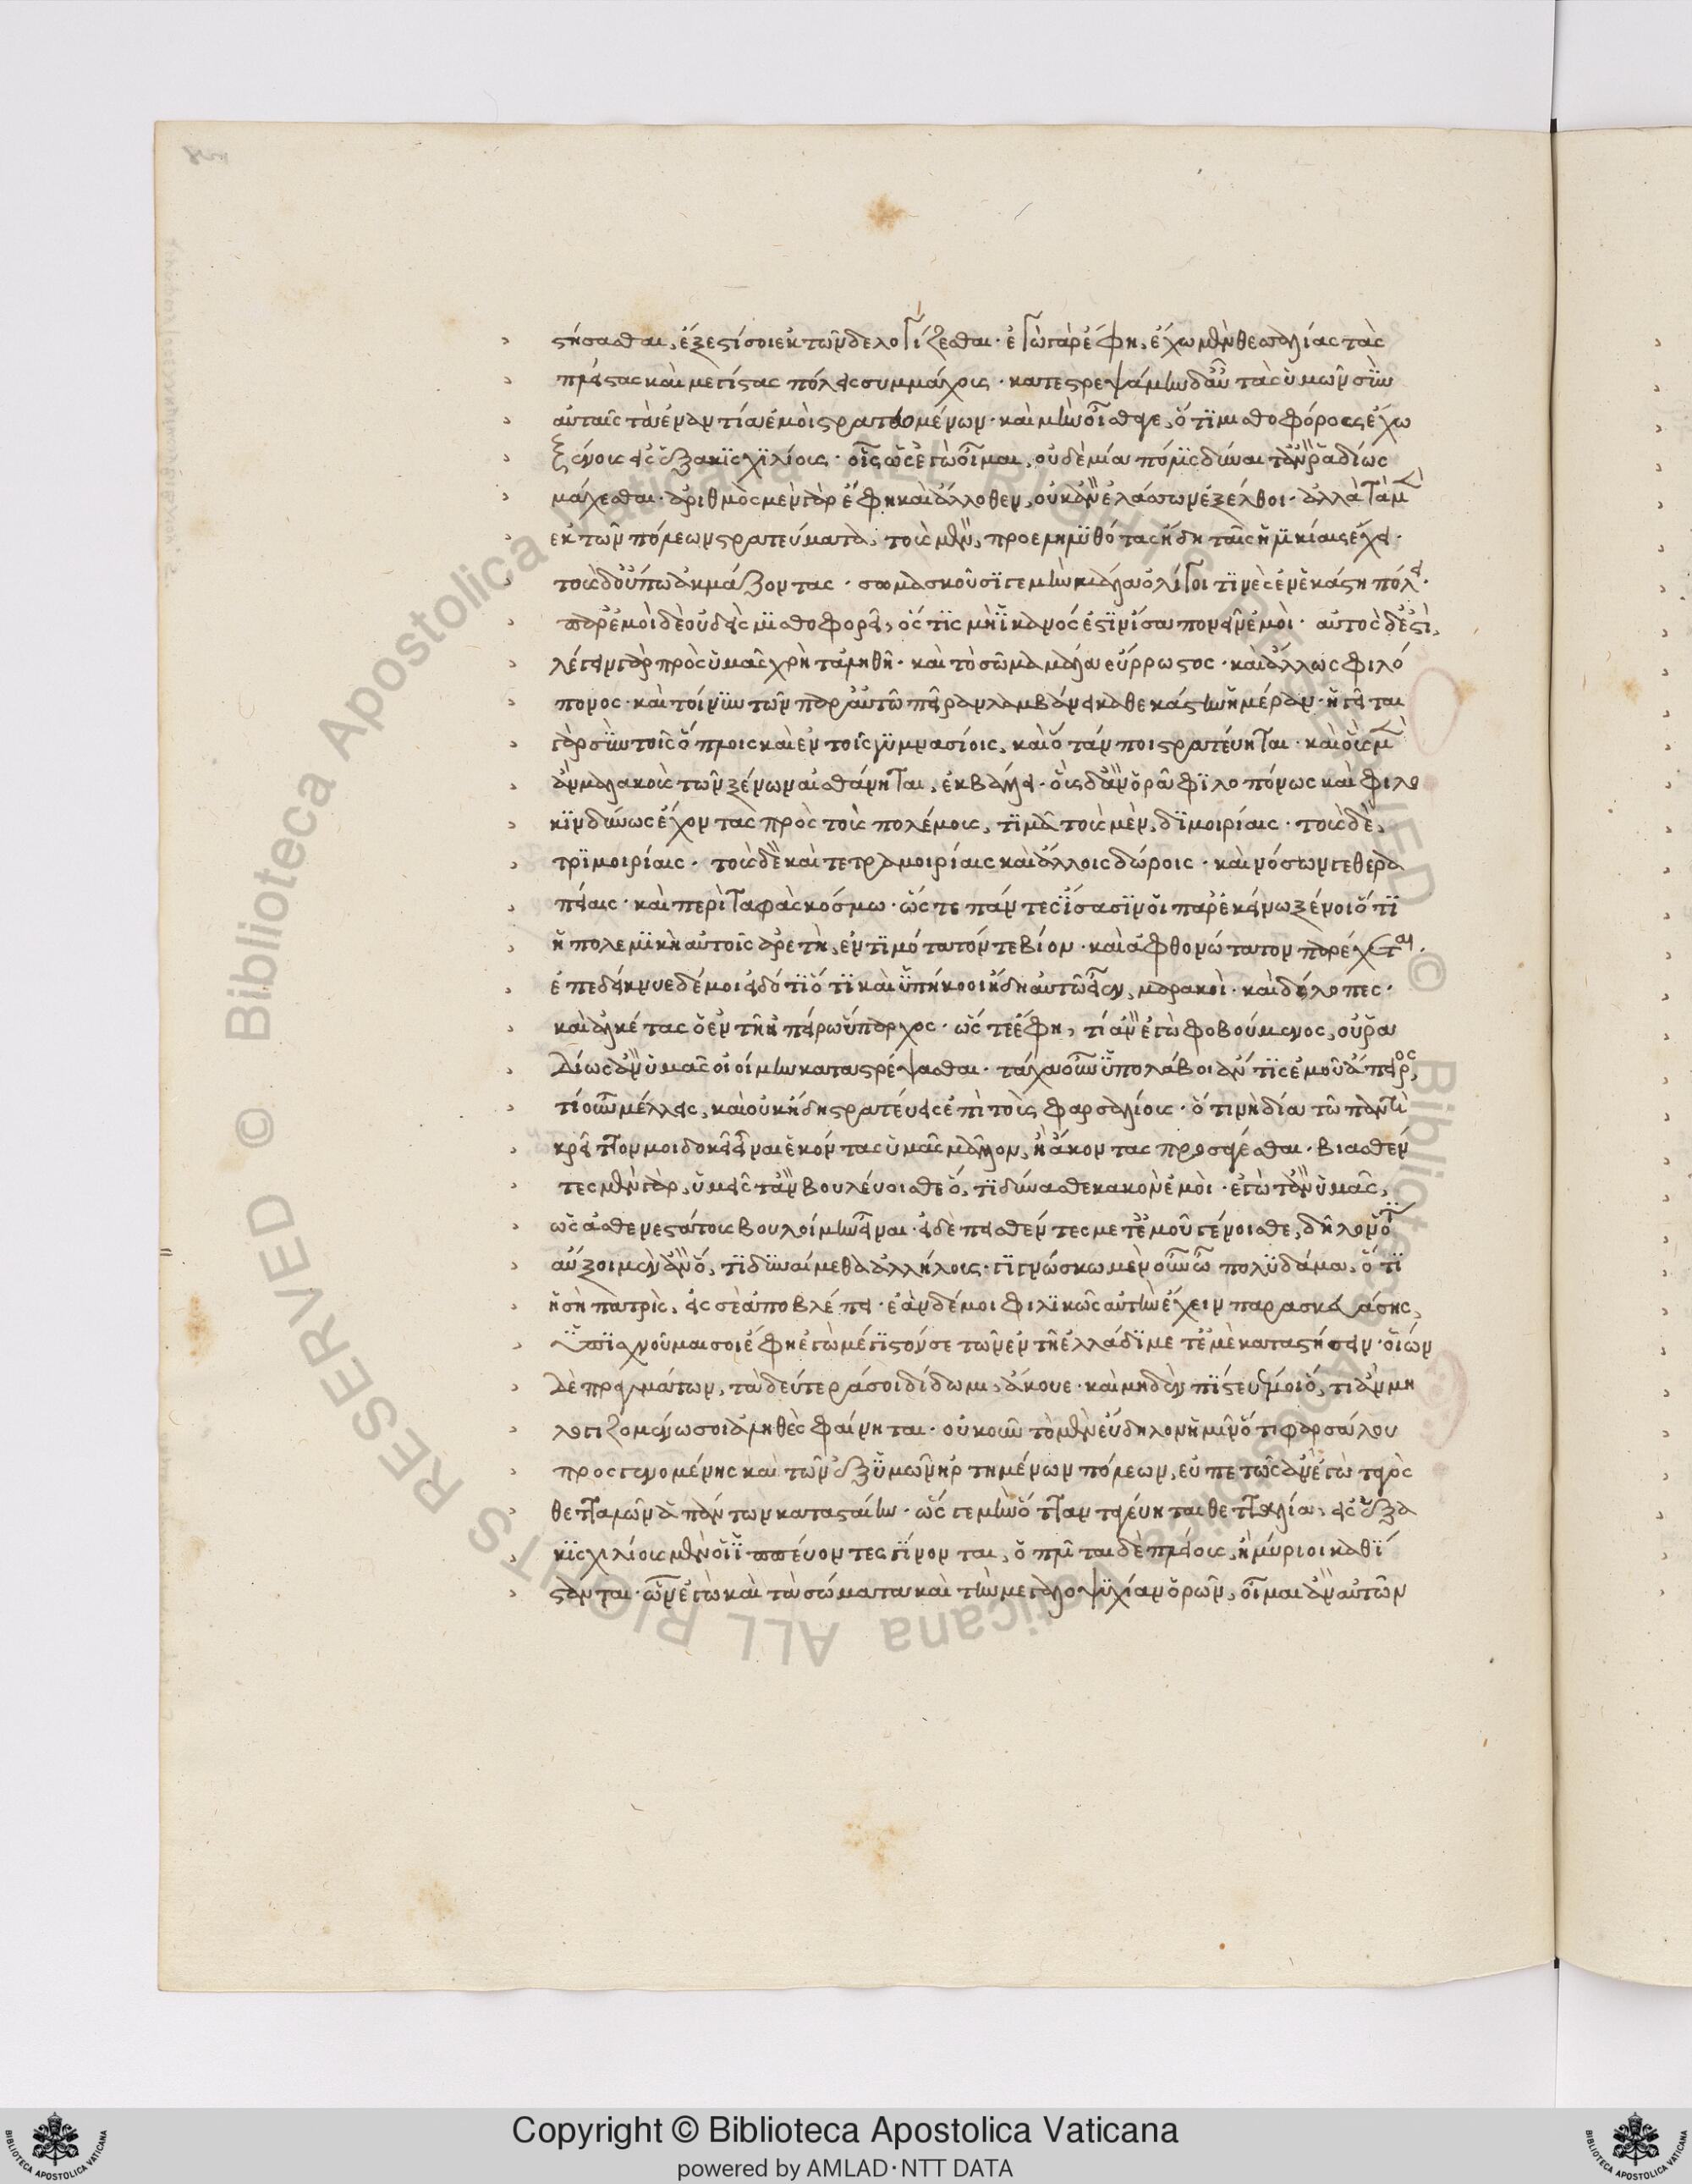 στήσασθαι, ἔξεστί σοι ἐκ τῶνδε λογίζεσθαι· ἐγὼ γὰρ ἔφη, ἔχω μὲν θεσσαλίας τὰς
πλείστας καὶ μεγίστας πόλεις συμμάχους· κατεστρεψάμην δ' αὐτὰς ὑμῶν σὺν
αὐταῖς τὰ ἐναντία ἐμοὶ στρατευομένων· καὶ μὴν οἶσθά γε, ὅτι μισθοφόρους ἔχω
ξένους εἰς ἑξακισχιλίους· οἷς ὡς ἐγὼ οἶμαι, οὐδεμία πόλις δύναιτ' ἂν ῥαδίως
μάχεσθαι· ἀριθμὸς μὲν γὰρ ἔφη καὶ ἄλλοθεν, οὐκ ἂν ἐλάσσων ἐξέλθοι· ἀλλὰ τὰ μὲν
ἐκ τῶν πόλεων στρατεύματα, τοὺς μὲν, προεληλυθότας ἤδη ταῖς ἡλικίαις ἔχει·
τοὺς δ' οὔπω ἀκμάζοντας· σωμασκοῦσί γε μὴν μάλα ὀλίγοι τινὲς ἐν ἑκάστη πόλει·
παρ' ἐμοὶ δὲ οὐδεὶς μισθοφορεῖ, ὅς τις μὴ ἱκανός ἐστιν ἴσα πονεῖν ἐμοὶ· αὐτὸς δ' ἐστὶ,
λέγειν γὰρ πρὸς ὑμᾶς χρὴ τἀληθῆ· καὶ τὸ σῶμα μάλα εὔρρωστος· καὶ ἄλλως φιλό
πονος· καὶ τοίνυν τῶν παρ' αὐτῶ πεῖραν λαμβάνει καθ' ἑκάστην ἡμέραν· ἡγεῖται
γὰρ σὺν τοῖς ὅπλοις καὶ ἐν τοῖς γυμνασίοις, καὶ ὅταν ποι στρατεύηται· καὶ οὓς μὲν
ἂν μαλακοὺς τῶν ξένων αἰσθάνηται, ἐκβάλλει· οὓς δ' ἂν ὁρᾶ φιλοπόνως καὶ φιλο
κινδύνως ἔχοντας πρὸς τοὺς πολέμους, τιμᾶ τοὺς μὲν, διμοιρίαις· τοὺς δὲ,
τριμοιρίαις· τοὺς δὲ καὶ τετραμοιρίαις καὶ ἄλλοις δώροις· καὶ νόσων γε θερα
πείαις· καὶ περὶ ταφὰς κόσμω· ὥς τε πάντες ἴσασιν οἱ παρ' ἐκείνω ξένοι ὅτι
ἡ πολεμικὴ αὐτοῖς ἀρετὴ, ἐντιμότατόν τε βίον· καὶ ἀφθονώτατον παρέχεται·
ἐπεδείκνυε δέ μοι εἰδότι ὅτι καὶ ὑπήκοοι ἤδη αὐτῶ εἶεν, μαρακοὶ· καὶ δόλοπες·
καὶ ἀλκέτας ὁ ἐν τῆ ἠπείρω ὕπαρχος· ὥς τε ἔφη, τί ἂν ἐγὼ φοβούμενος, οὐ ῥα
δίως ἂν ὑμᾶς οἰοίμην καταστρέψασθαι· τάχα οὖν ὑπολάβοι ἄν τις ἐμοῦ ἄπειρος,
τί οὖν μέλλεις, καὶ οὐκ ἤδη στρατεύεις ἐπὶ τοὺς φαρσαλίους· ὅτι νὴ δία τῶ παντὶ
κρεῖττον μοι δοκεῖ εἶναι ἑκόντας ὑμᾶς μᾶλλον, ἢ ἄκοντας προσαγέσθαι· βιασθέν
τες μὲν γὰρ, ὑμεῖς τ' ἂν βουλεύοισθε ὅ, τι δύνασθε κακὸν ἐμοὶ· ἐγώ τ' ἂν ὑμᾶς,
ὡς ἀσθενεστάτους βουλοίμην εἶναι· εἰ δὲ πεισθέντες μετ' ἐμοῦ γένοισθε, δῆλον ὅτι
αὔξοιμεν ἂν ὅ, τι δυναίμεθα ἀλλήλους· γιγνώσκω μὲν οὖν ὦ πολυδάμα, ὅτι
ἡ σὴ πατρὶς, εἰς σὲ ἀποβλέπει· ἐὰν δέ μοι φιλικῶς αὐτὴν ἔχειν παρασκευάσης,
ὑπισχνοῦμαι σοι ἔφη ἐγὼ μέγιστόν σε τῶν ἐν τῆ ἑλλάδι μετ' ἐμὲ καταστήσειν· οἵων
δὲ πραγμάτων, τὰ δεύτερά σοι δίδωμι, ἄκουε· καὶ μηδὲν πίστευέ μοι ὅ, τι ἂν μὴ
λογιζομένω σοι ἀληθὲς φαίνηται· οὐκοῦν τὸ μὲν εὔδηλον ἡμῖν ὅτι φαρσάλου
προσγενομένης καὶ τῶν ἐξ ὑμῶν ἠρτημένων πόλεων, εὐπετῶς ἂν ἐγὼ ταγὸς
θετταλῶν ἁπάντων κατασταίην· ὥς γε μὴν ὅταν ταγεύηται θετταλία, εἰς ἑξα
κισχιλίους μὲν οἱ ἱππεύοντες γίνονται, ὁπλῖται δὲ πλείους, ἢ μύριοι καθί
στανται· ὧν ἐγὼ καὶ τὰ σώματα καὶ τὴν μεγαλοψυχίαν ὁρῶν, οἶμαι ἂν αὐτῶν
Copyright © Biblioteca Apostolica Vaticana
powered by AMLAD·NTT DATA